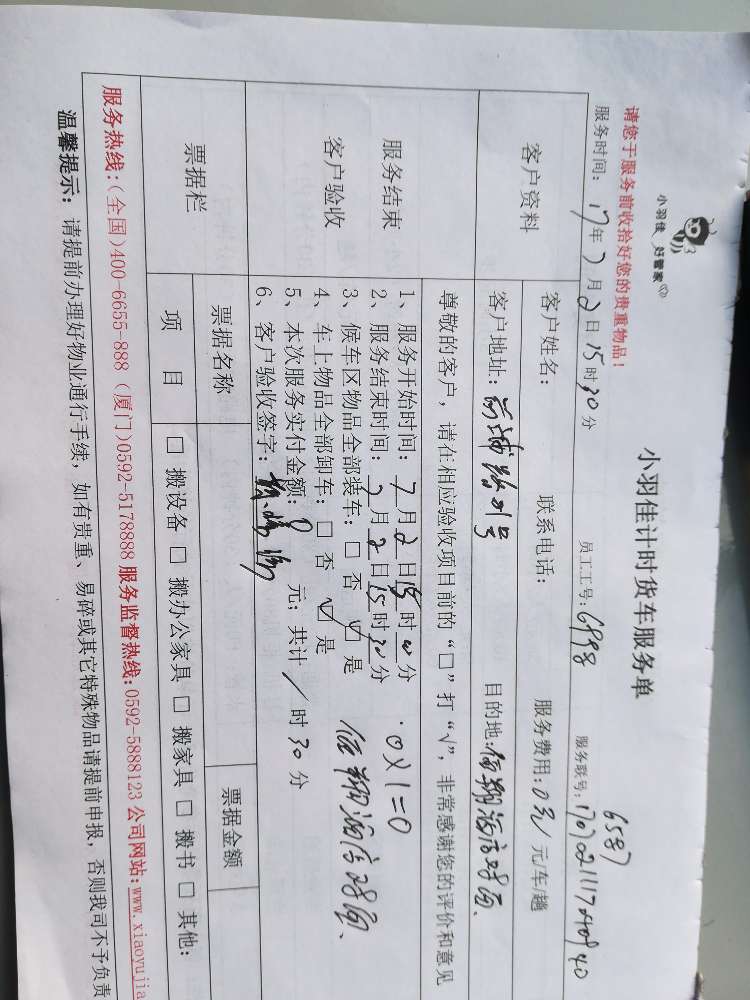 小羽佳 好管家
小羽佳计时货车服务单
6587
请您于服务前收拾好您的贵重物品!
服务时间: 17年7月2日15时30分 员工工号: 6998 服务联号:
客户资料
客户姓名: 联系电话: 服务费用: 0元/ 元/车/趟
客户地址: 目的地:
服务结束
客户验收
尊敬的客户, 请在相应验收项目前的“□”打“√”, 非常感谢您的评价和意见
1、服务开始时间: 7月2日15时00分 0×1=0
2、服务结束时间: 7月2日15时30分
3、候车区物品全部装车: □ 否 ☑ 是
4、车上物品全部卸车: □ 否 ☑ 是
5、本次服务实付金额: 0 元; 共计 / 时 30 分
6、客户验收签字:
票据栏
票据名称 票据金额
项 目 □ 搬设备 □ 搬办公家具 □ 搬家具 □ 搬书 □ 其他:
服务热线:(全国)400-6655-888 (厦门)0592-5178888 服务监督热线:0592-5888123 公司网站:www.xiaoyujia
温馨提示: 请提前办理好物业通行手续, 如有贵重、易碎或其它特殊物品请提前申报, 否则我司不予负责